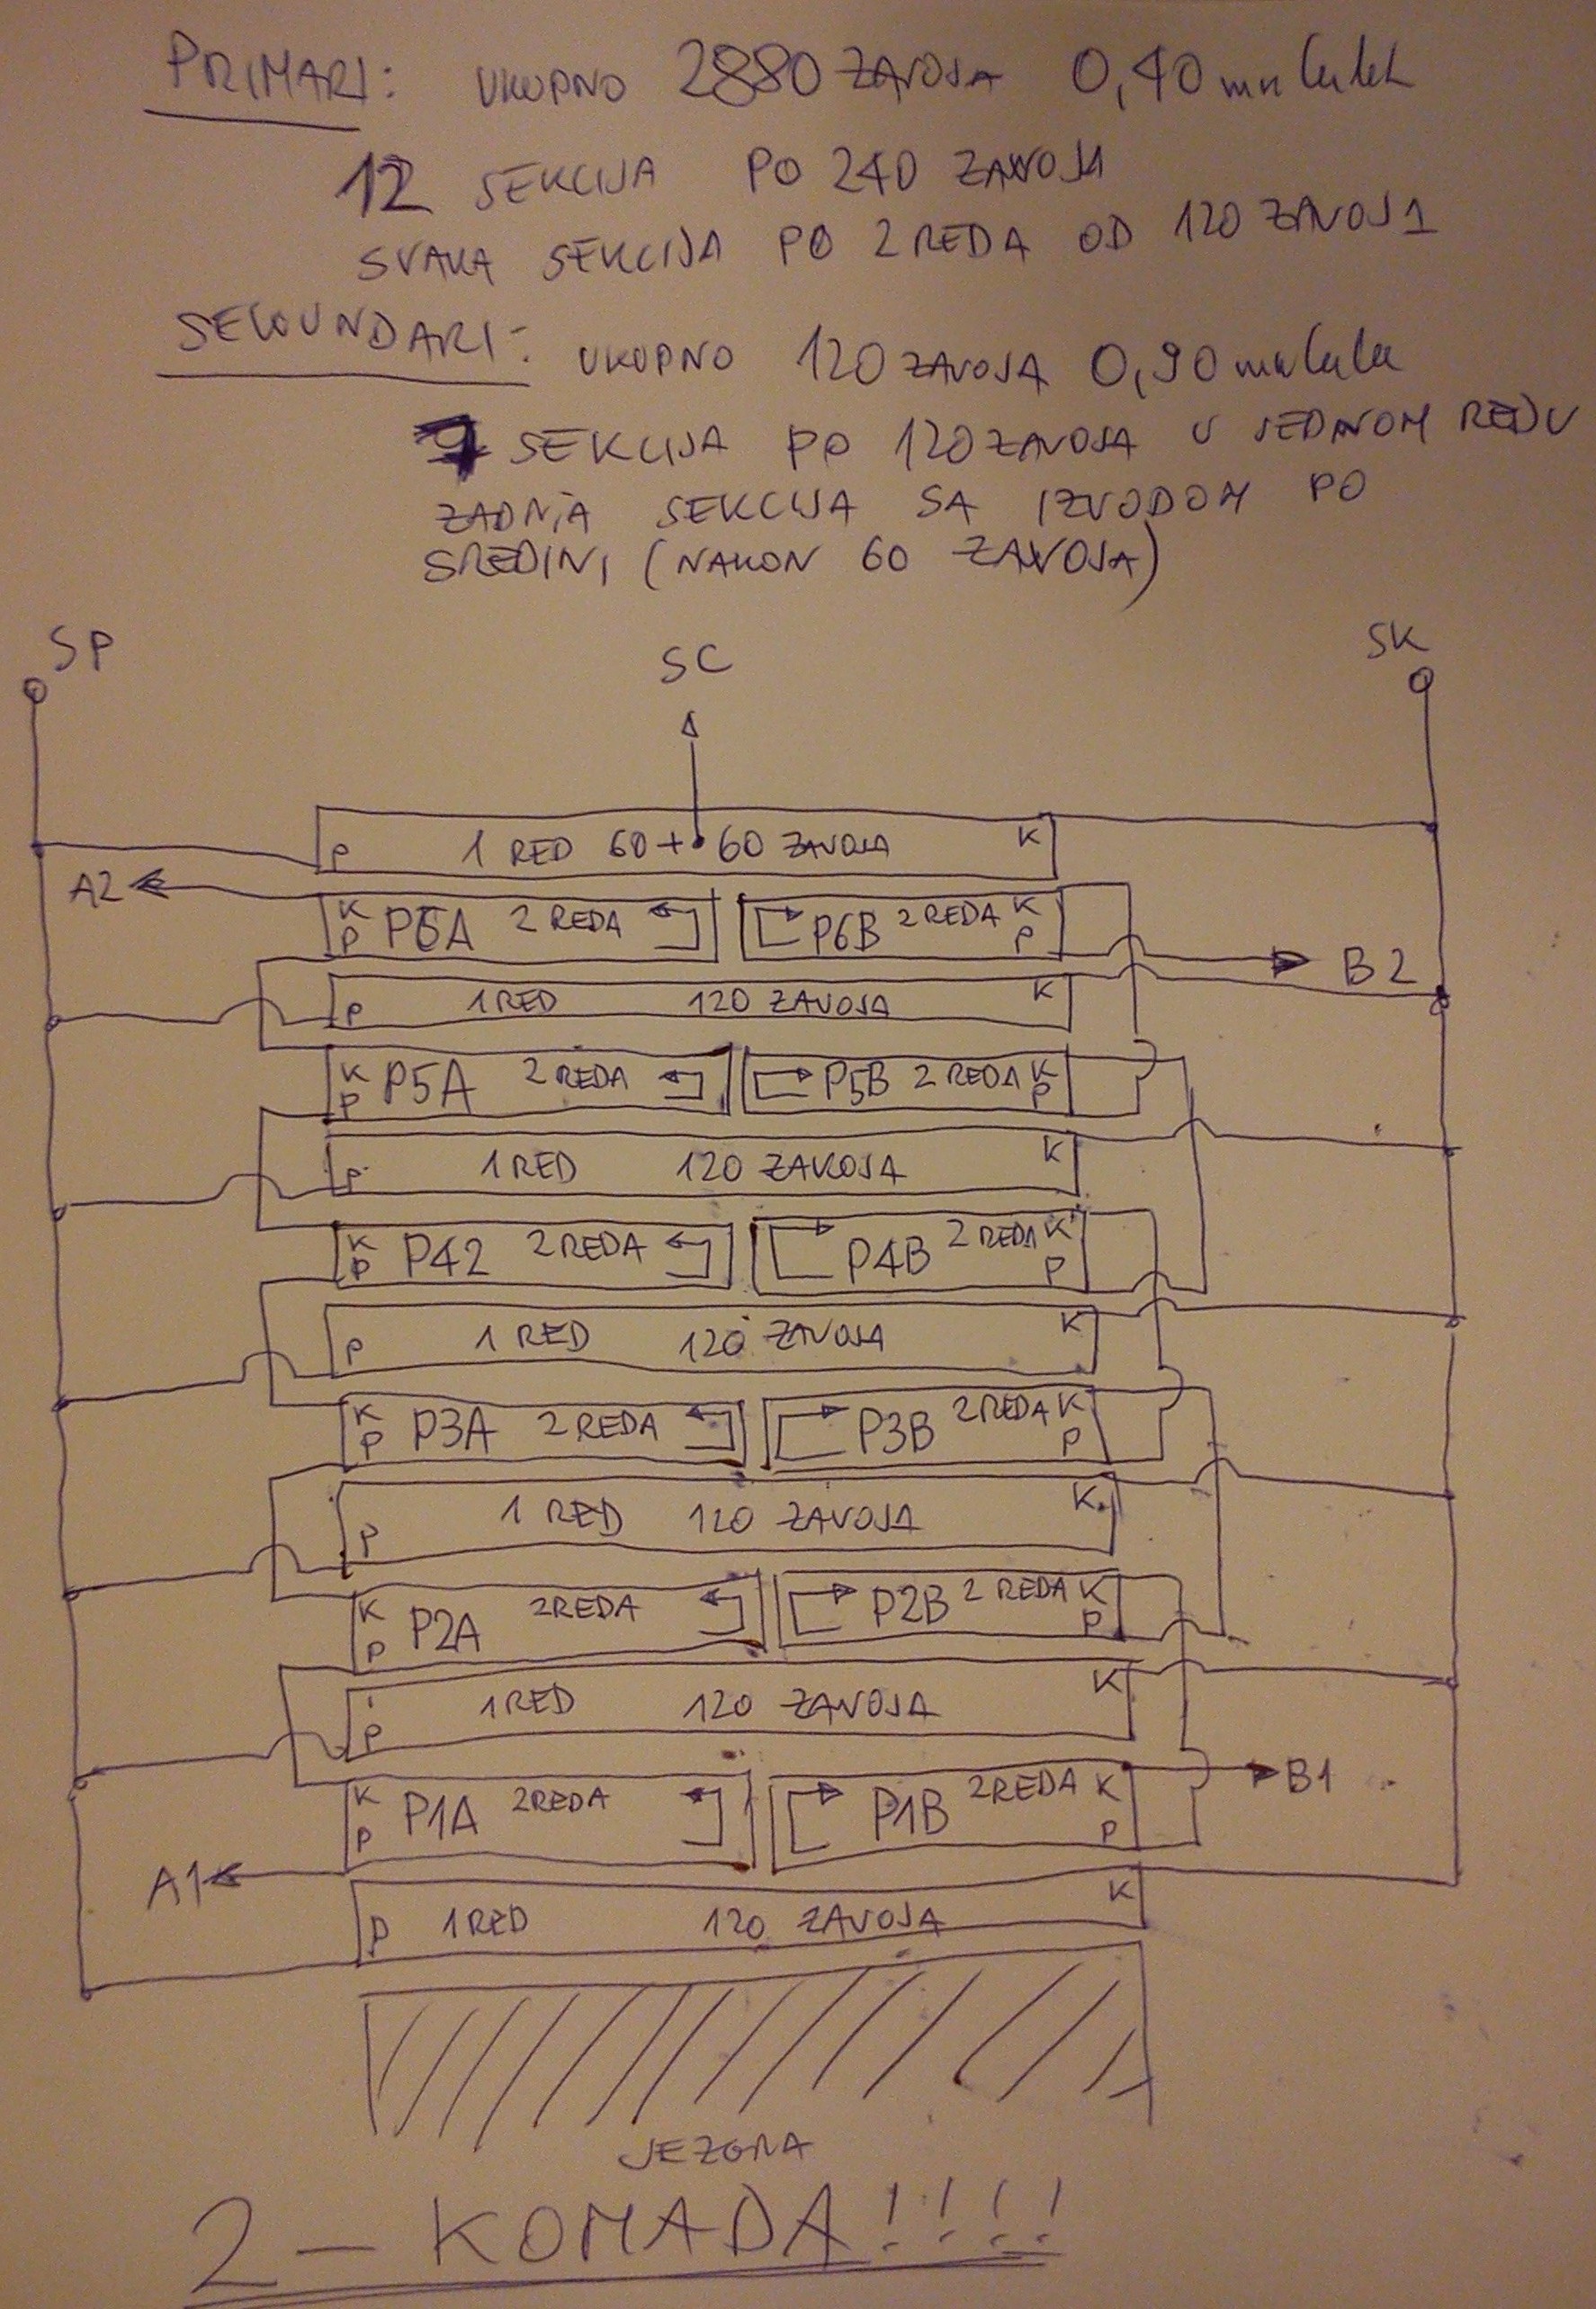 PRIMARI: UKUPNO 2880 ZAVOJA 0,40 mm CuLak
12 SEKCIJA PO 240 ZAVOJA
SVAKA SEKCIJA PO 2 REDA OD 120 ZAVOJA
SEKUNDARI: UKUPNO 120 ZAVOJA 0,90 mm CuLak
7 SEKCIJA PO 120 ZAVOJA U JEDNOM REDU
ZADNJA SEKCIJA SA IZVODOM PO
SREDINI (NAKON 60 ZAVOJA)
SP SC SK
P 1 RED 60 + 60 ZAVOJA K
A2
K P P6A 2 REDA P6B 2 REDA K P
B2
P 1 RED 120 ZAVOJA K
K P P5A 2 REDA P5B 2 REDA K P
P 1 RED 120 ZAVOJA K
K P P42 2 REDA P4B 2 REDA K P
P 1 RED 120 ZAVOJA K
K P P3A 2 REDA P3B 2 REDA K P
P 1 RED 120 ZAVOJA K
K P P2A 2 REDA P2B 2 REDA K P
P 1 RED 120 ZAVOJA K
K P P1A 2 REDA P1B 2 REDA K P
B1
A1
P 1 RED 120 ZAVOJA K
JEZGRA
2 - KOMADA!!!!